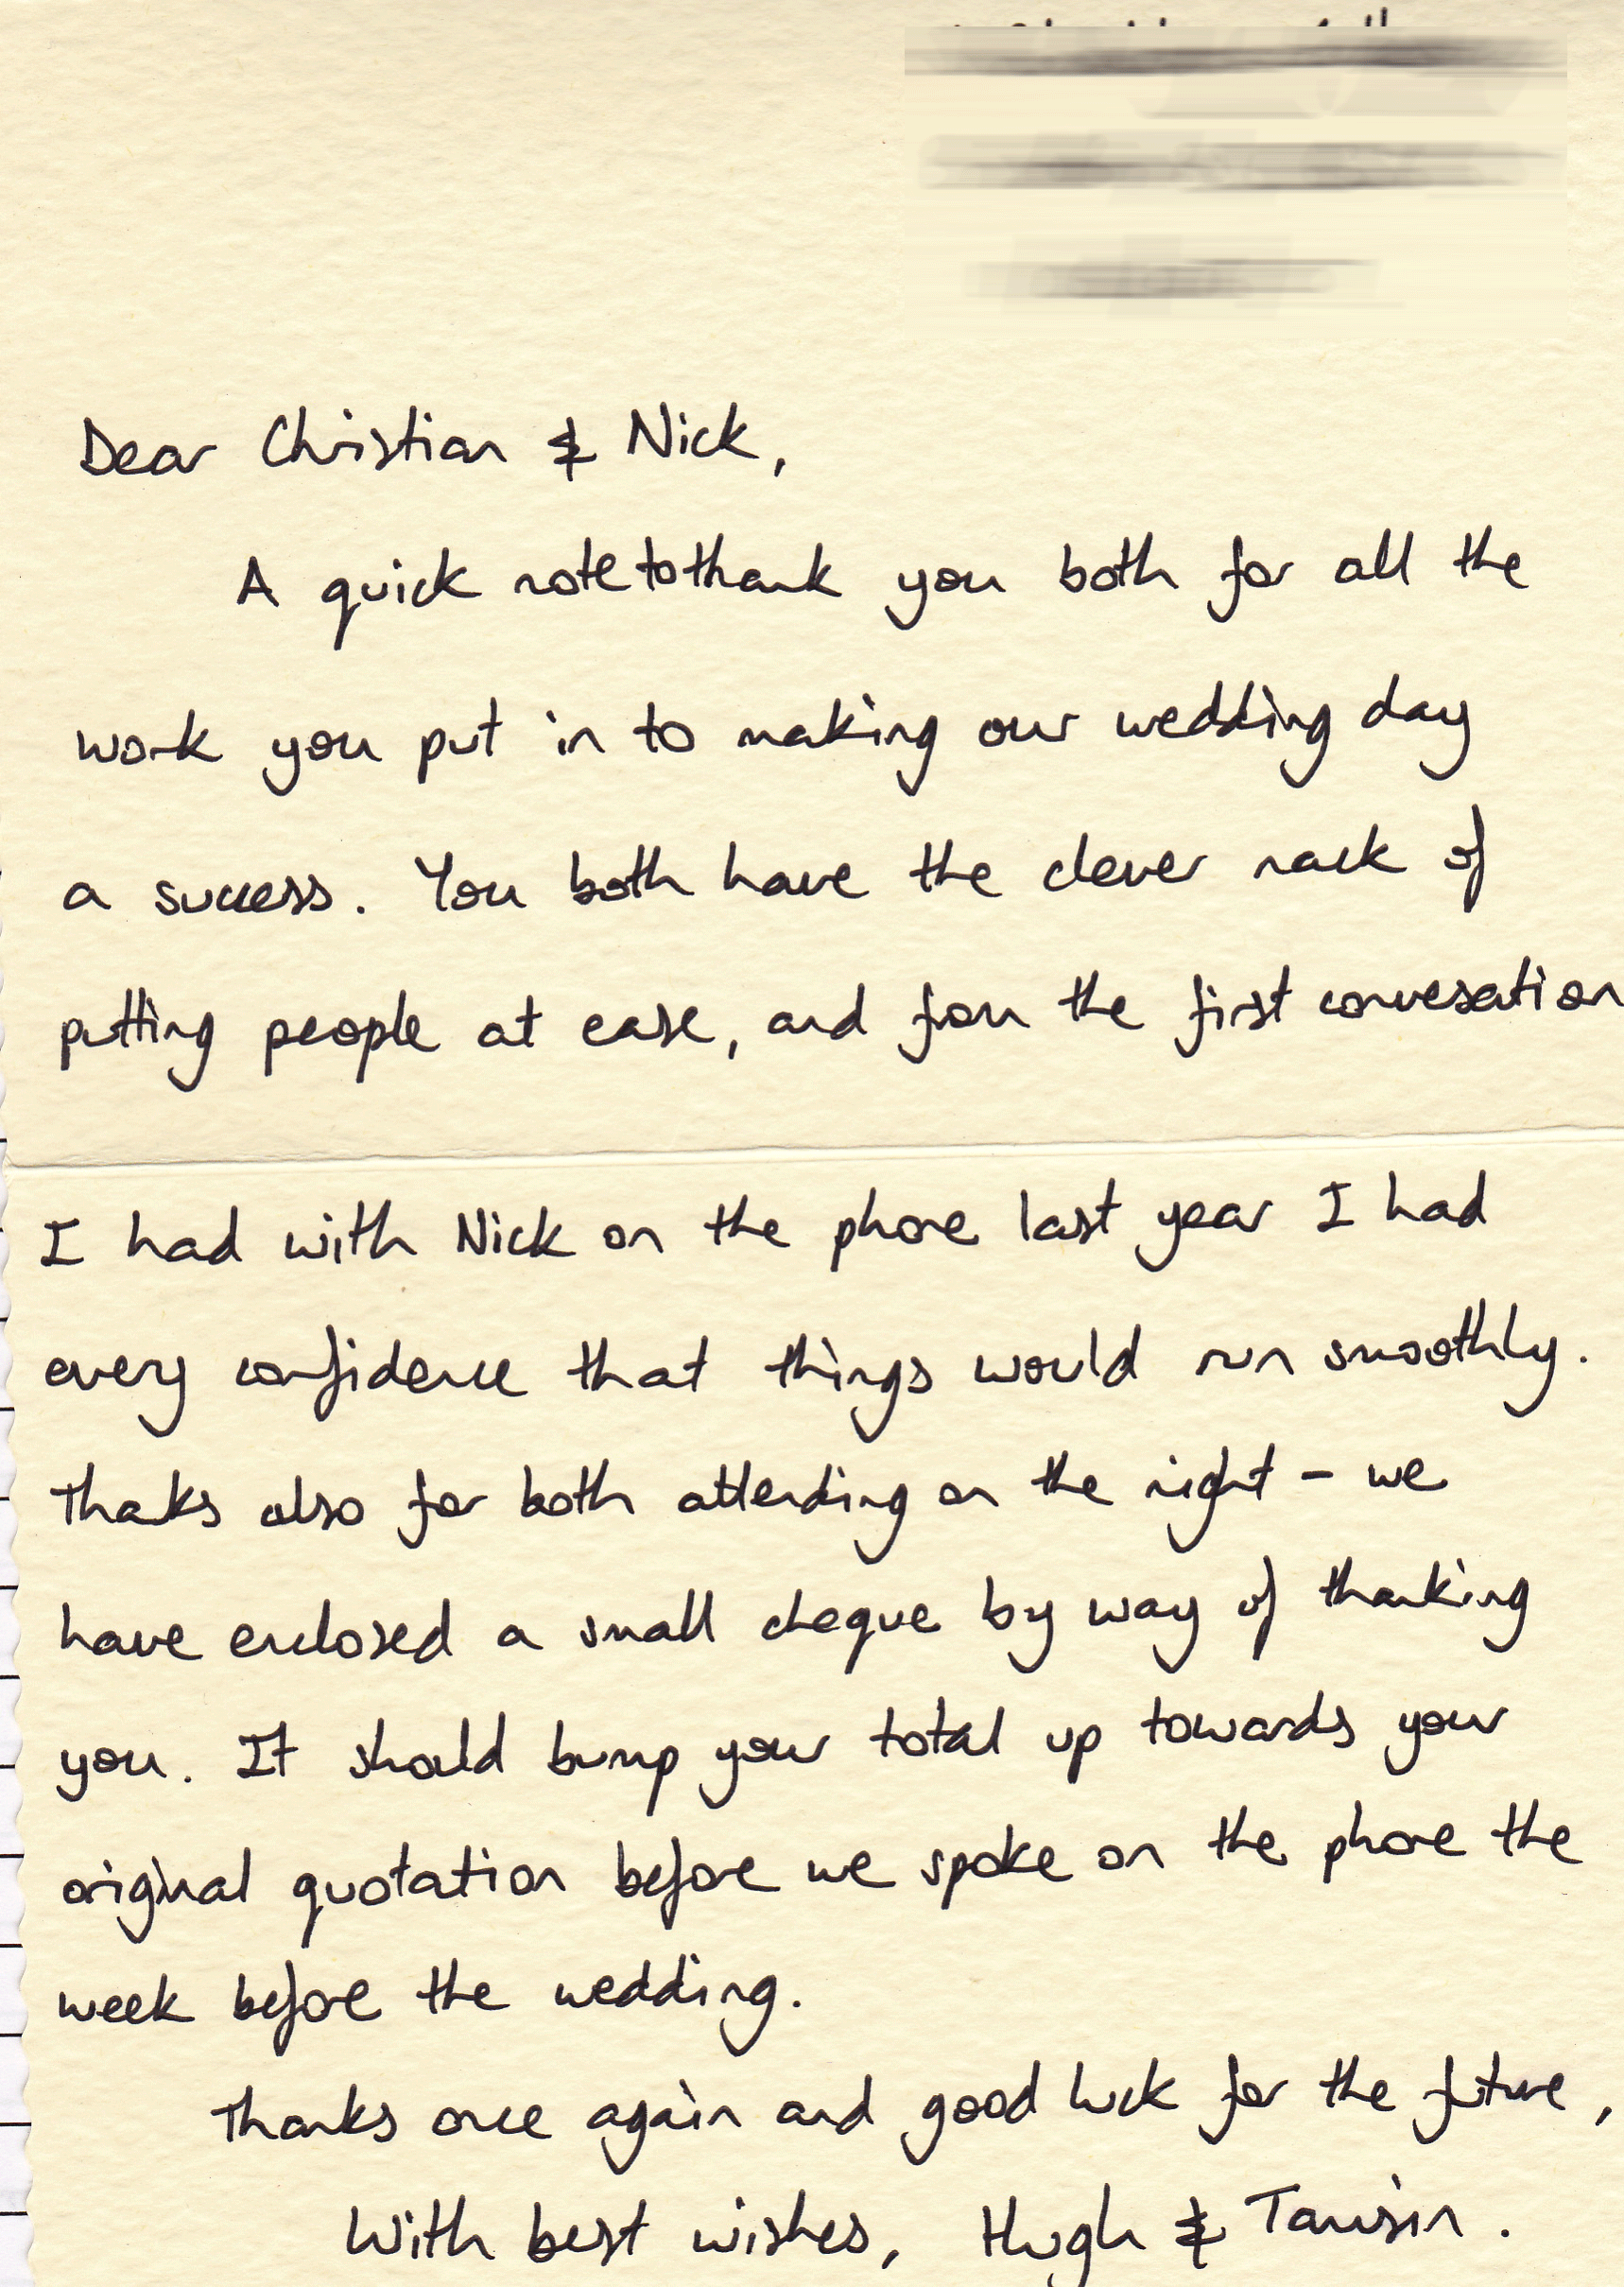 Dear Christian & Nick,
A quick note to thank you both for all the
work you put in to making our wedding day
a success. You both have the clever nack of
putting people at ease, and from the first conversation
I had with Nick on the phone last year I had
every confidence that things would run smoothly.
Thanks also for both attending on the night - we
have enclosed a small cheque by way of thanking
you. It should bump your total up towards your
original quotation before we spoke on the phone the
week before the wedding.
Thanks once again and good luck for the future,
With best wishes, Hugh &